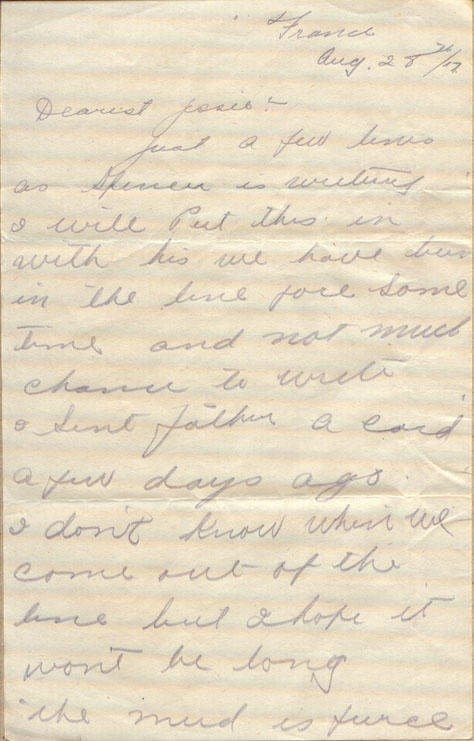 France
Aug. 28th/17
Dearest Josie:-
Just a few lines
as Spencer is writing
I will Put this in
with his we have been
in the line fore some
time and not much
chance to write
I sent father a card
a few days ago.
I don't know when we
come out of the
line but I hope it
wont be long
the mud is furce